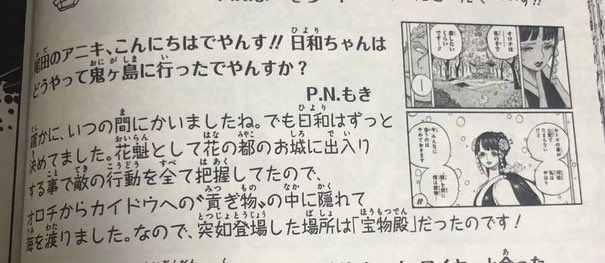 尾田のアニキ、こんにちはでやんす!! 日和ちゃんは
どうやって鬼ヶ島に行ったでやんすか?
P.N.もき
確かに、いつの間にかいましたね。でも日和はずっと
決めてました。花魁として花の都のお城に出入り
する事で敵の行動を全て把握してたので、
オロチからカイドウへの〝貢ぎ物〟の中に隠れて
海を渡りました。なので、突如登場した場所は「宝物殿」だったのです!
オロチは
私の手で